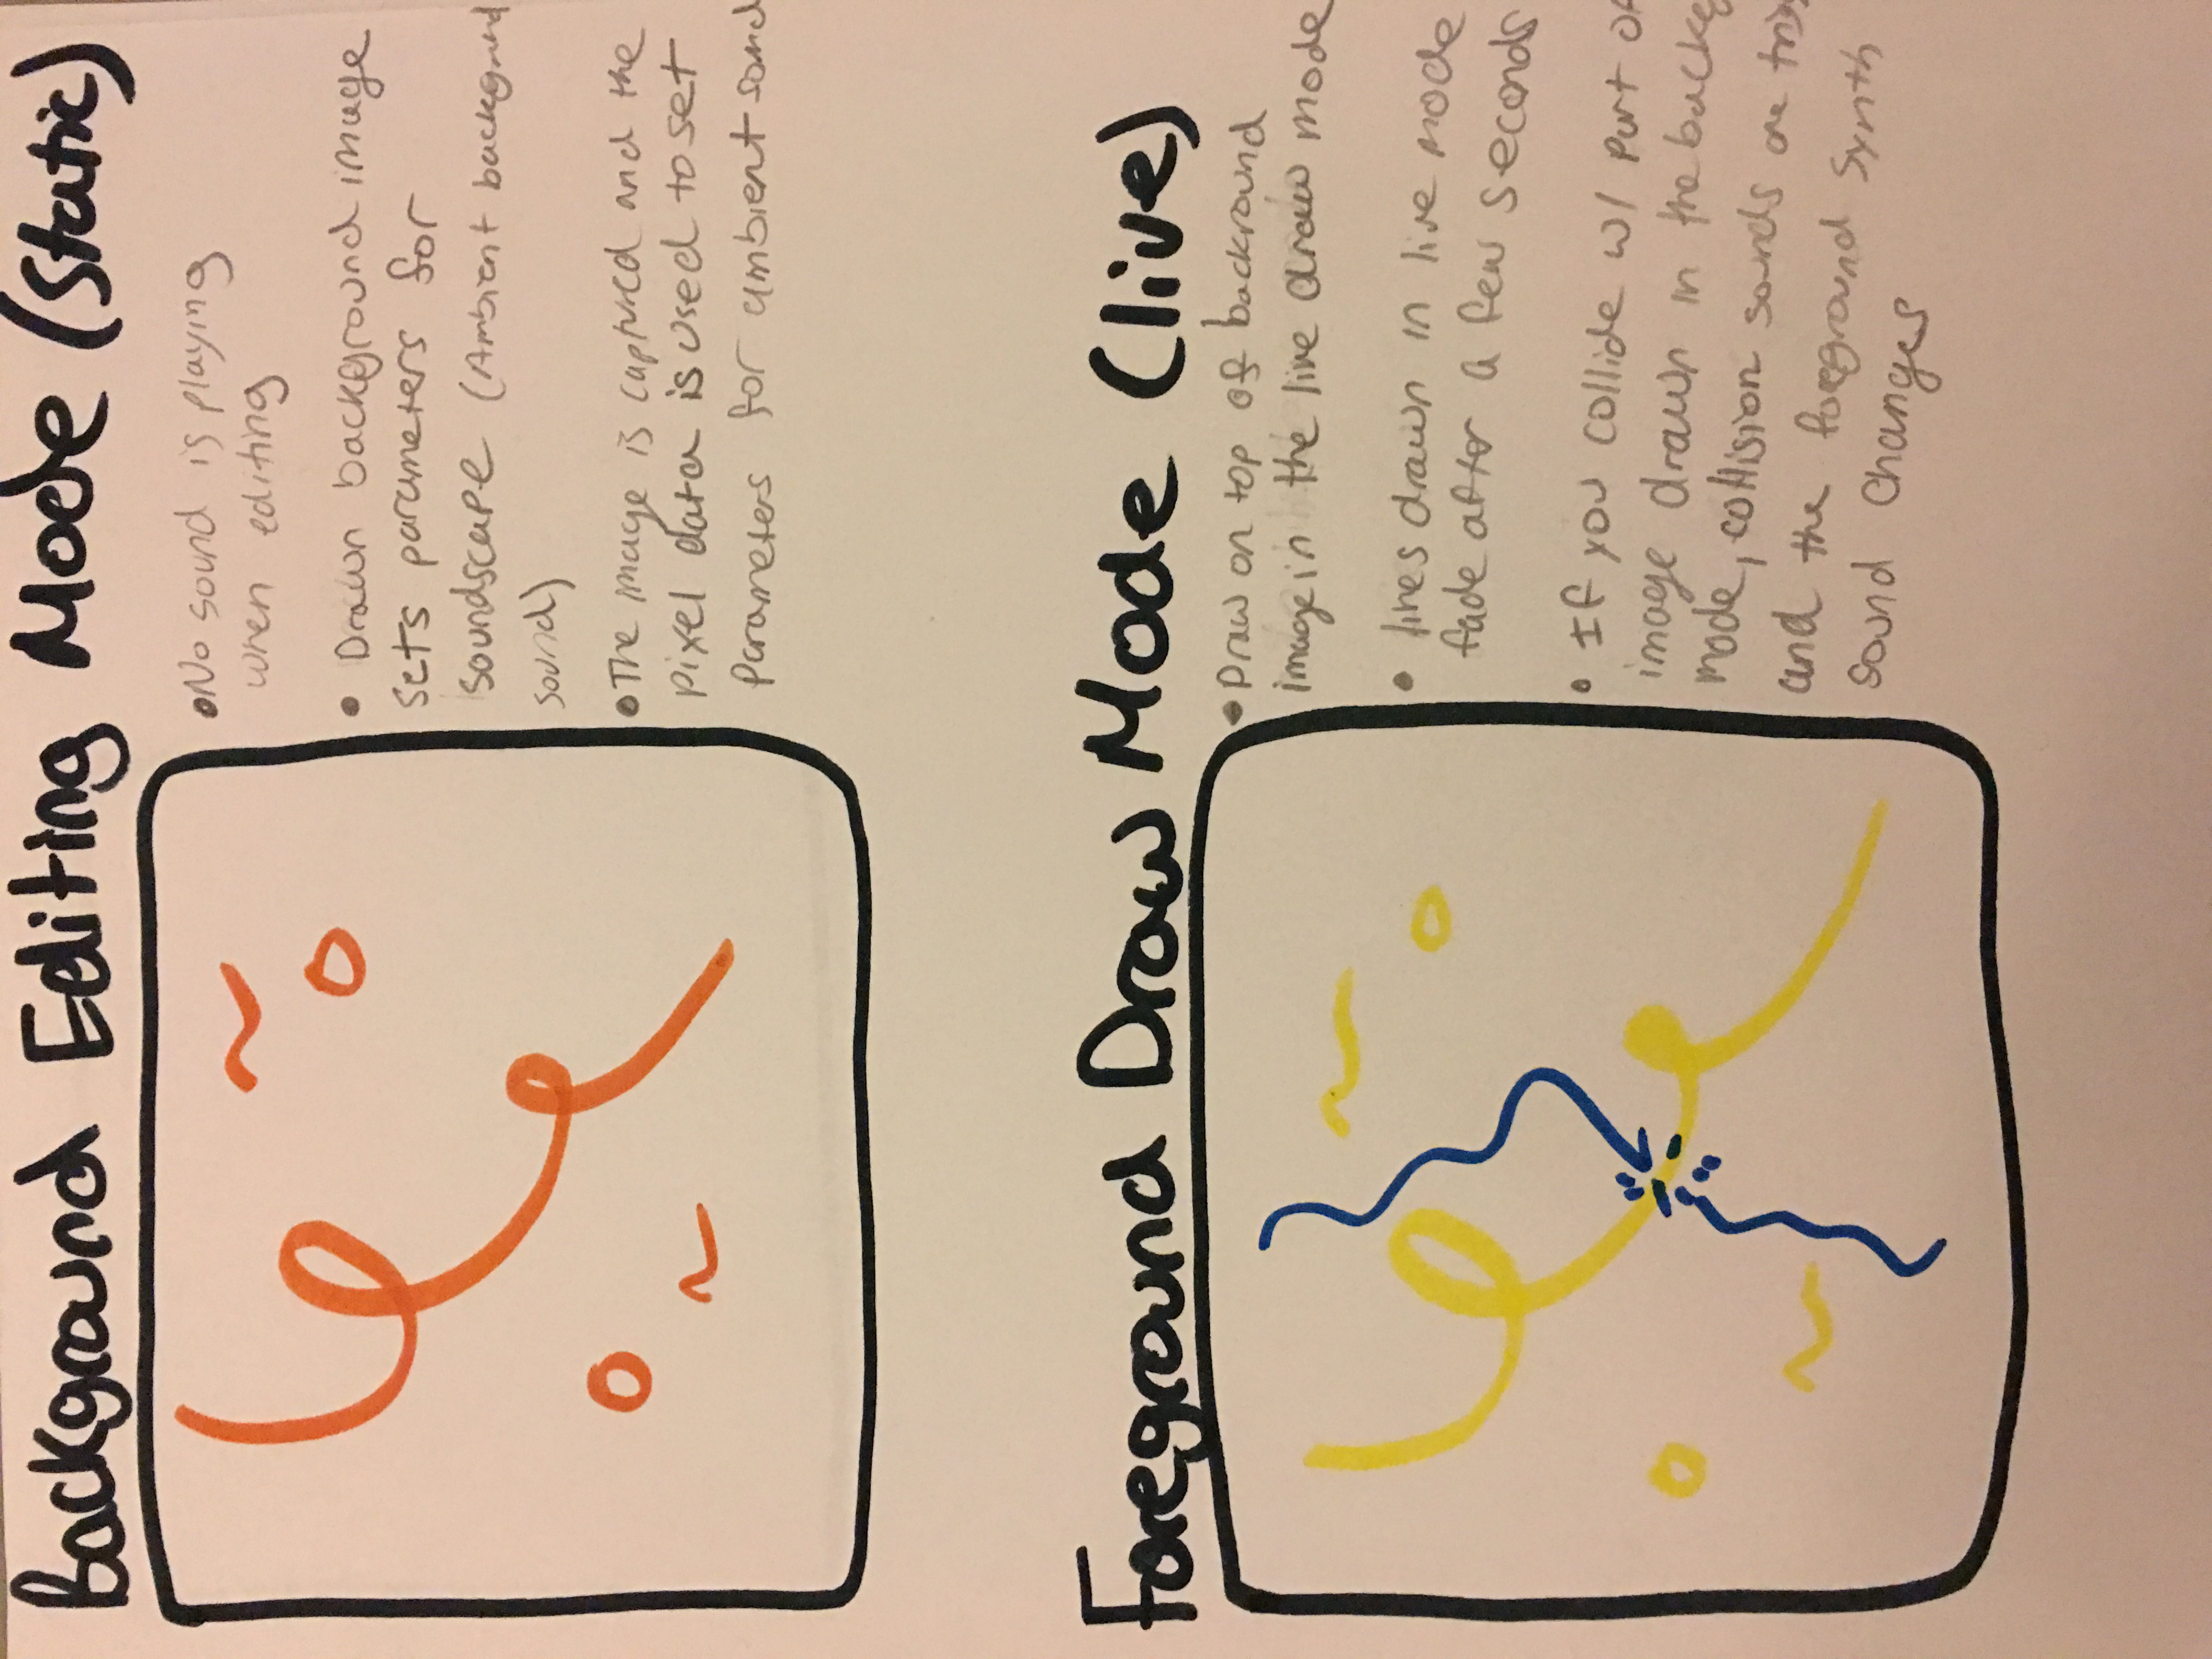 Background Editing Mode (Static)
•No sound is playing
when editing
• Drawn background image
sets parameters for
soundscape (Ambient background
sound)
•The image is captured and the
pixel data is used to set
parameters for ambient sound
Foreground Draw Mode (live)
•Draw on top of backround
image in the live draw mode
• lines drawn in live mode
fade after a few seconds
• If you collide w/ part of
image drawn in the backg
mode, collision sounds are trig
and the foreground synth
sound changes